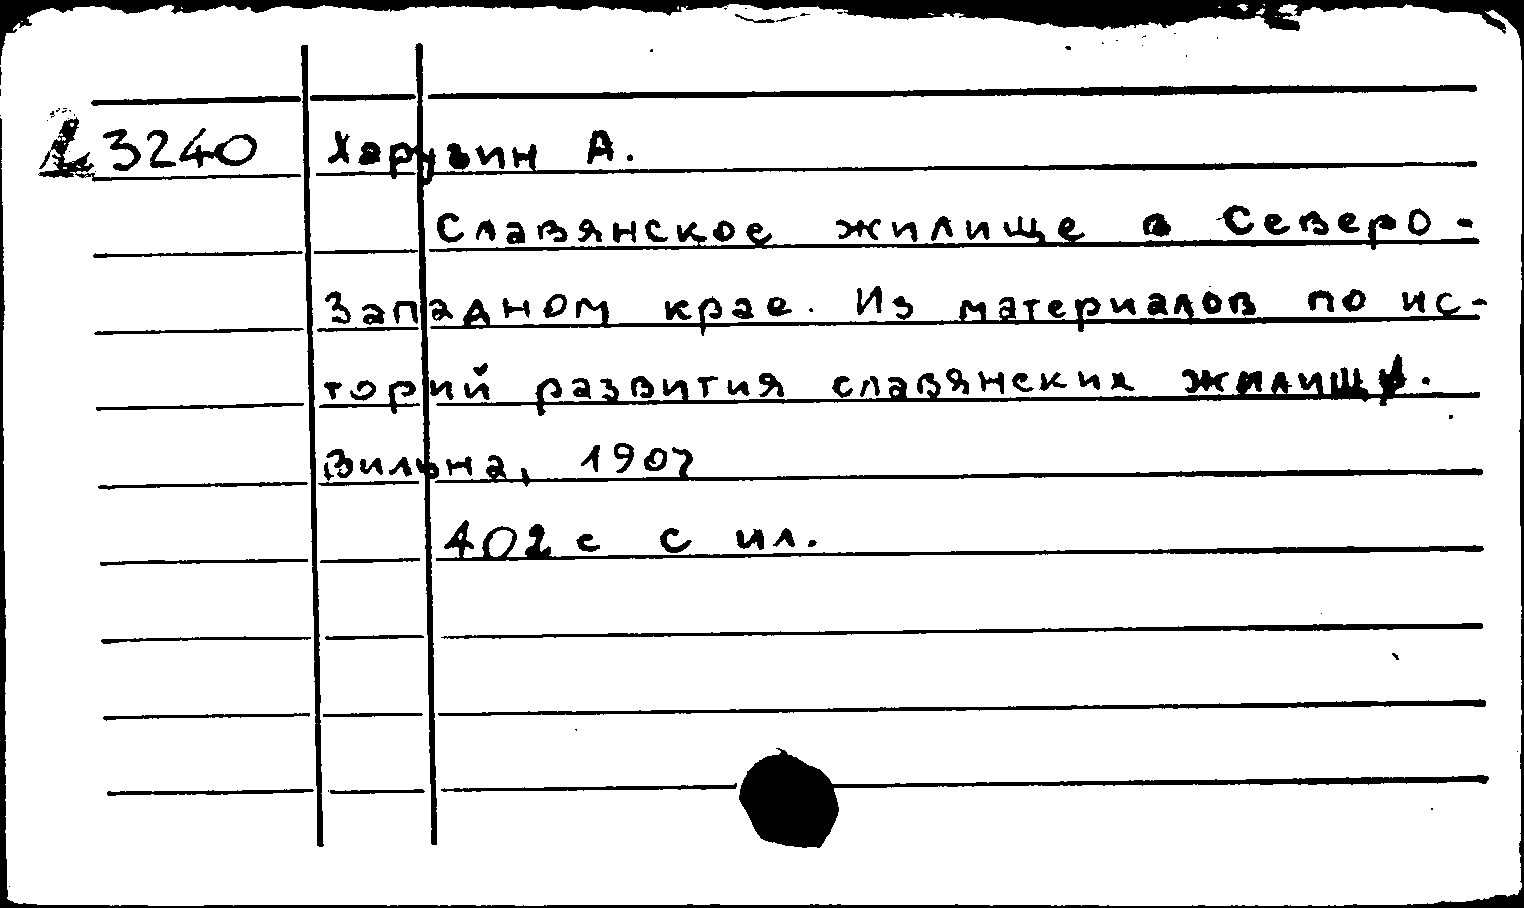 L 3240 Харузин А.
Славянское жилище в Северо-
Западном крае. Из материалов по ис-
торий развития славянских жилищ.
Вильна, 1907
402 с с ил.